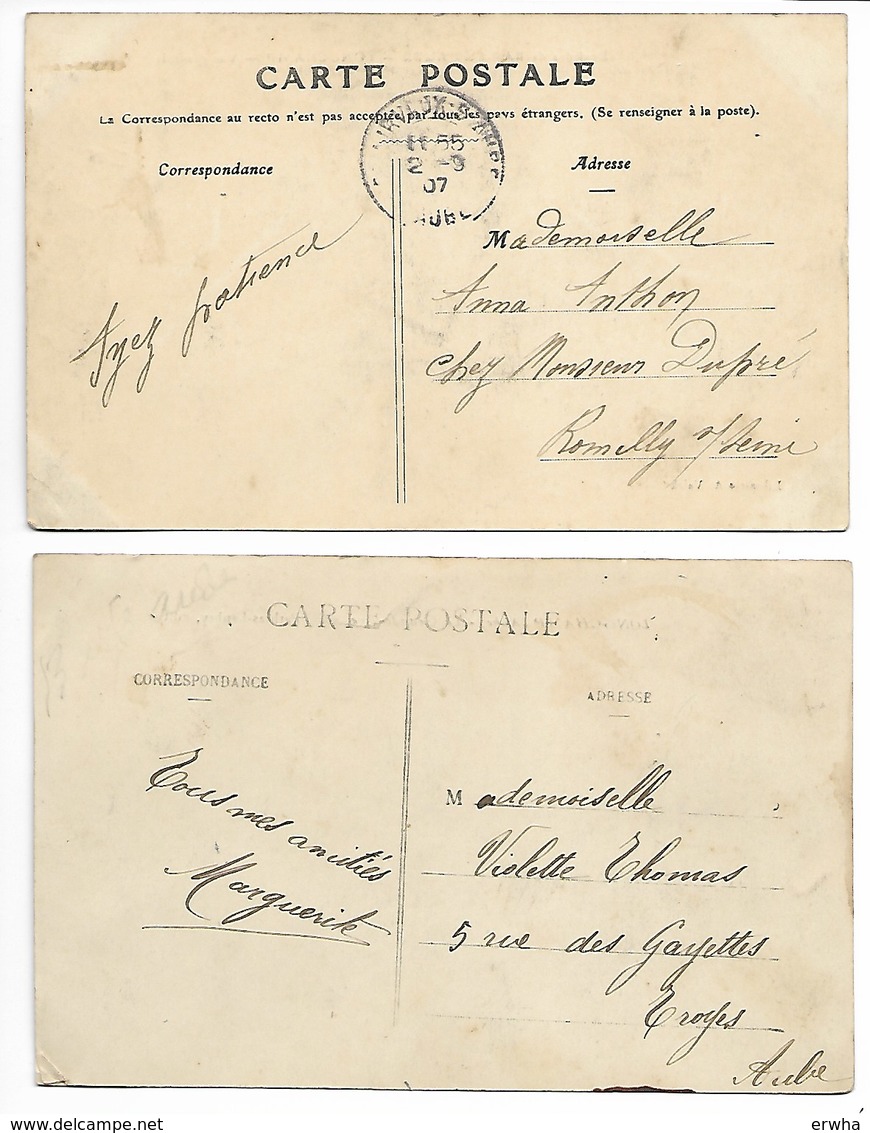 CARTE POSTALE
La Correspondance au recto n'est pas acceptée par tous les pays étrangers. (Se renseigner à la poste).
Correspondance
Adresse
11 55
2 -9
07
Ayez patience
Mademoiselle
Anna Anthon
chez Monsieur Dupré
Romilly s/Seine
CARTE POSTALE
CORRESPONDANCE
ADRESSE
Tous mes amitiés
Marguerite
Mademoiselle
Violette Thomas
5 rue des Gayettes
Troyes
Aube
delcampe.net
erwha